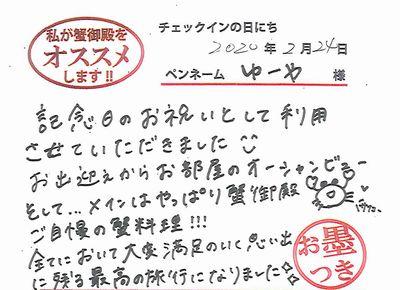 私が蟹御殿を
オススメ
します!!
チェックインの日にち
2020年2月24日
ペンネーム ゆーや 様
記念日のお祝いとして利用
させていただきました
お出迎えからお部屋のオーシャンビュー
そして…メインはやっぱり蟹御殿
ご自慢の蟹料理!!!
全てにおいて大変満足のいく思い出
に残る最高の旅行になりました☆☆
お墨
つき